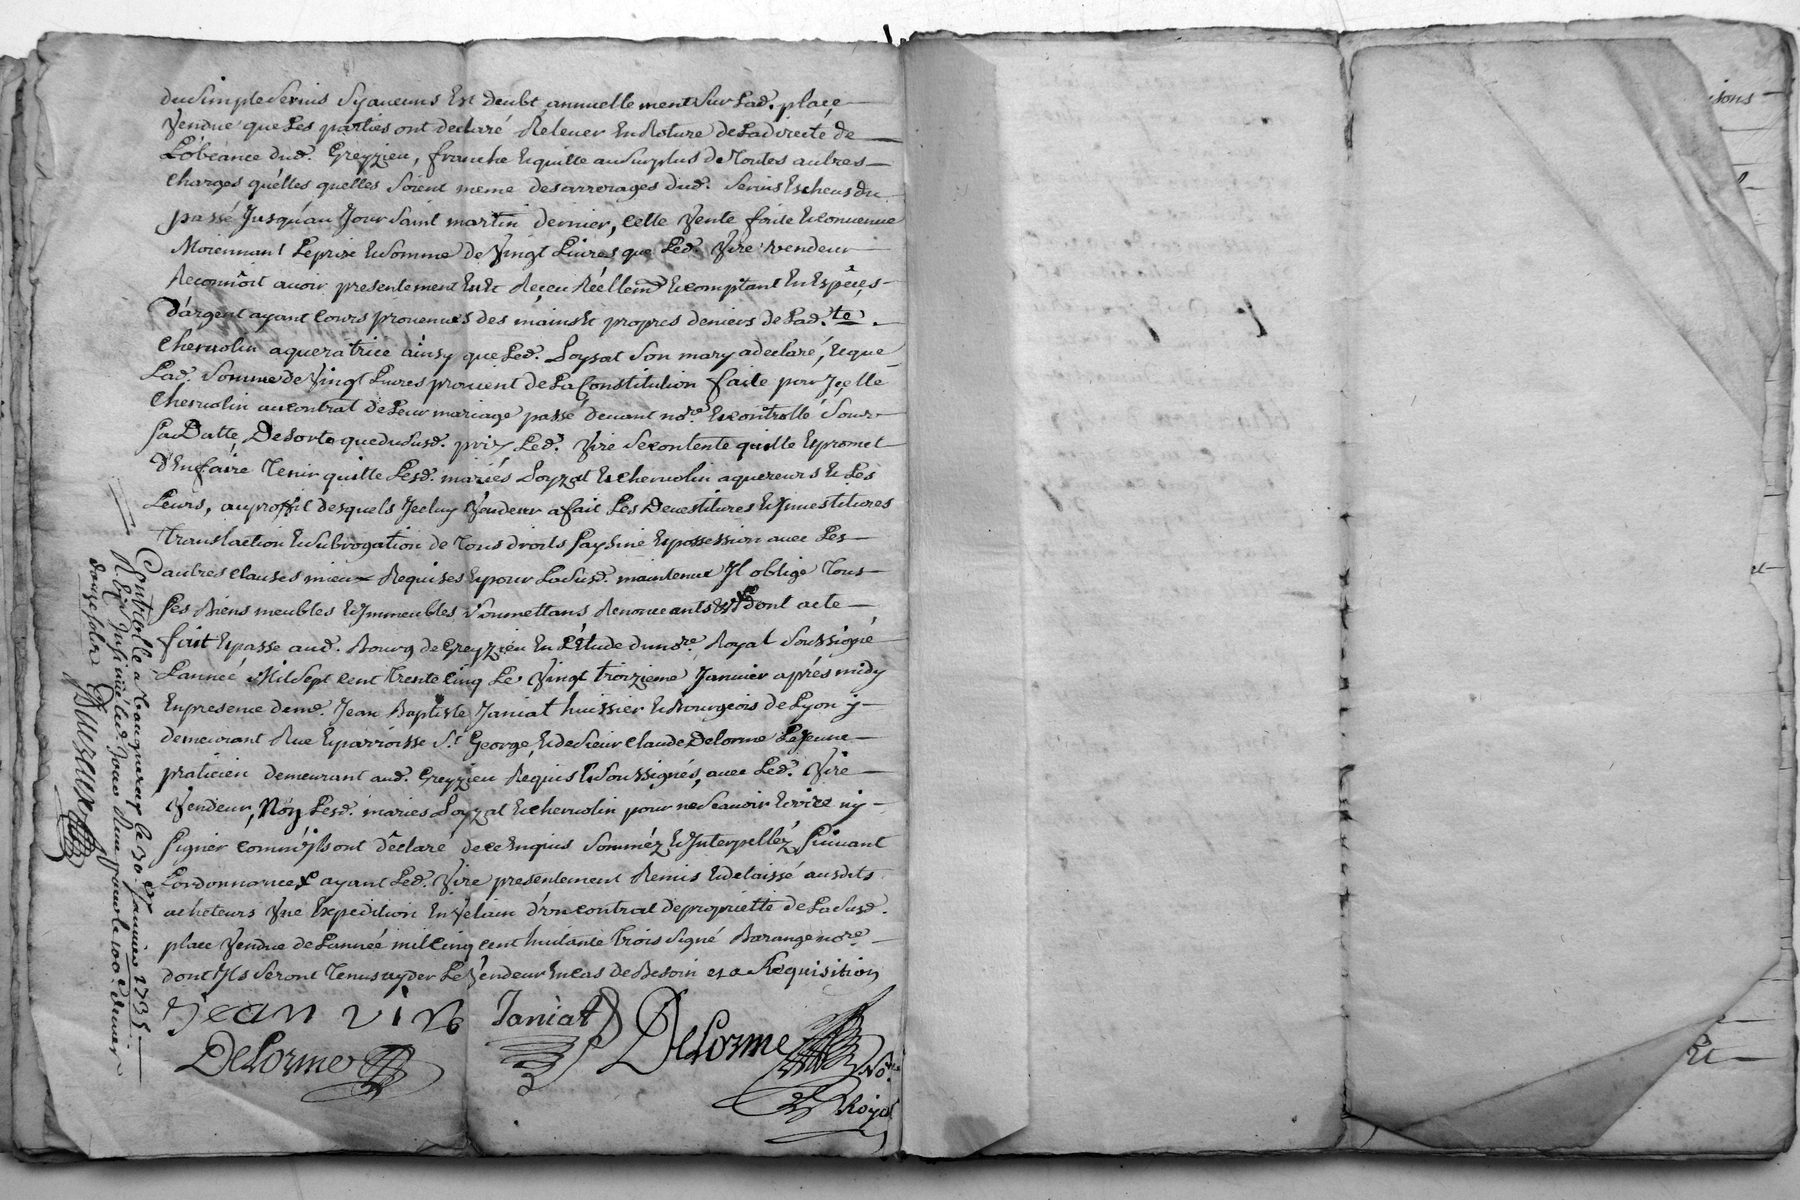 du simple Servis Sy aucuns Est deubt annuellement Sur Lad. place
Vendue que Les parties ont declaré Relever En Roture de La directe de
L'obeance dud. Greyzieu, franche Et quitte au Surplus de Toutes autres
Charges quélles quelles Soient meme des arrerages dud. Servis Escheus du
passé Jusqu'au Jour Saint martin dernier, Cette Vente faite Et convenue
Moiennant Le prix Et Somme de Vingt Livres que Led. Vire vendeur
Reconnôit avoir presentement Eu Et Reçeu Réèllemt Et comptant En Espéçes
D'argent ayant Cours provenues des mains Et propres deniers de Lad.te
Chervolin aqueratrice ainsy que Led. Loysat Son mary a declaré, Et que
Lad. Somme de Vingt Livres provient de La Constitution faite par Jcelle
Chervolin au contrat de Leur mariage passé devant nore. Et controllé Sour
Sa Datte, De Sorte que du Susd. prix Led. Vire Se contente quitte Et promet
D'En faire Tenir quitte Lesd. mariés Loyzat Et Chervolin aquereurs Et Les
Leurs, au proffit desquels Jceluy Vendeur a fait Les Devestitures Et Jnvestitures
Translaction Et Subrogation de Tous droits Saysine Et possession avec Les
autres Clauses mieux Requises Et pour La Susd. maintenue Jl oblige Tous
Ses Biens meubles Et Jmmeubles Soumettans Renonceants Et dont acte
fait Et passe aud. Bourg de Greyzieu En L'Etude du nore. Royal Soussigné
L'année Mil Sept Cent Trente Cinq Le Vingt Troizieme Janvier aprés midy
En presence de me. Jean Baptiste Janiat huissier Et Bourgeois de Lyon y
demeurant Rue Et parroisse St. George, Et de Sieur Claude Delorme Le Jeune
praticien demeurant aud. Greyzieu Requis Et Soussignés, avec Led. Vire
Vendeur, Nón Lesd. mariés Loyzat Et Chervolin pour ne Scavoir Ecrire ny
Signer comm'jls ont déclaré de ce Enquis Sommez Et Jnterpellez Suivant
L'ordonnance & ayant Led. Vire presentement Remis Et delaissé ausdits
acheteurs Vne Expedition En Velain D'un contrat de proprietté de La Susd.
place Vendue de L'année mil Cinq Cent huitante Trois Signé Barange nore.
dont Jls Seront Tenus ayder Le Vendeur En cas de Besoin et a Requisition
Jean vire Janiat Delorme
Delorme Nore.
Royal
Controllé a Vaugneray le 30e. Janvier 1735
R. Et Jnsinué Led. Jour pour le 100e. denier
douze solz